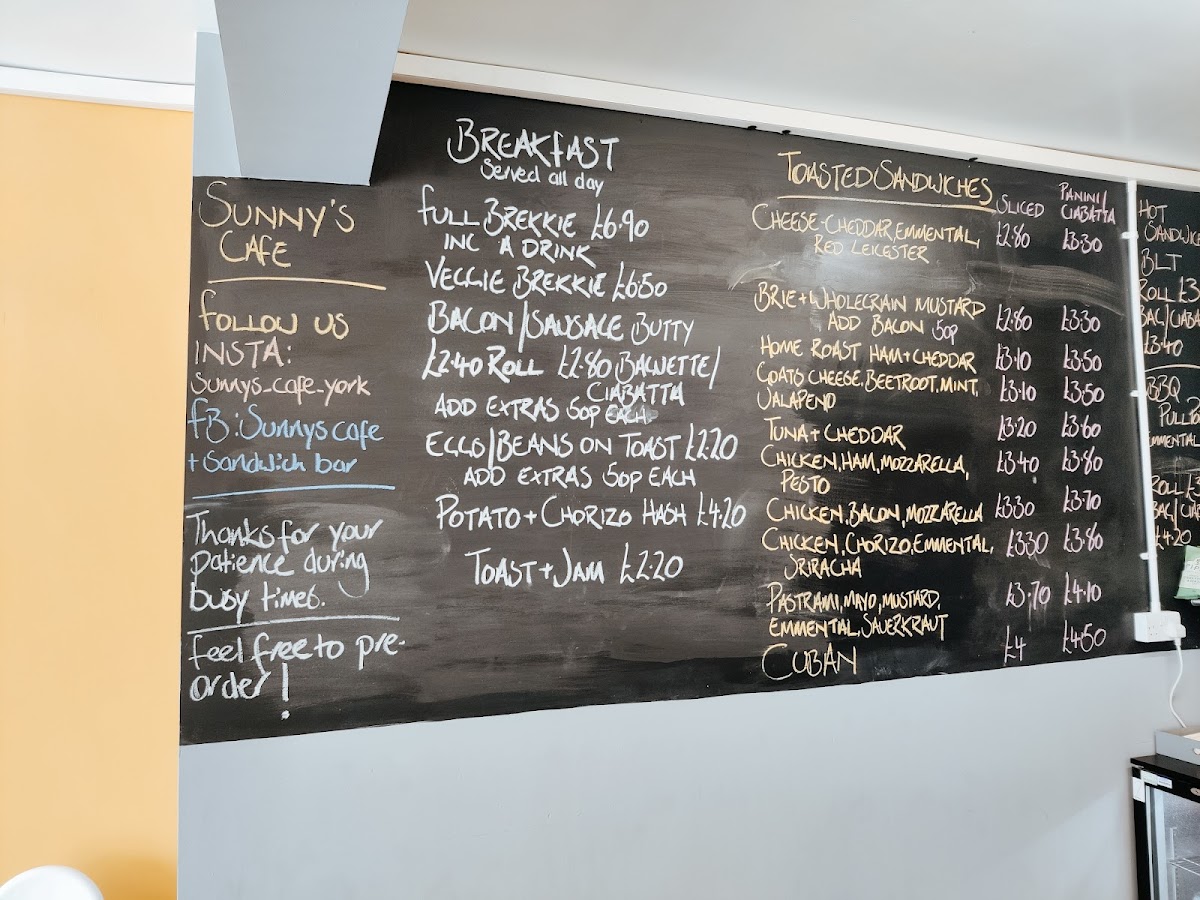 SUNNY'S
CAFE
FOLLOW US
INSTA:
Sunnys_cafe_york
FB: Sunnys cafe
+ Sandwich bar
Thanks for your
patience during
busy times.
Feel free to pre-
order!
BREAKFAST
Served all day
FULL BREKKIE £6.90
INC A DRINK
VEGGIE BREKKIE £6.50
BACON/SAUSAGE BUTTY
£2.40 ROLL £2.80 BAGUETTE/
CIABATTA
ADD EXTRAS 50p EACH
EGGS/BEANS ON TOAST £2.20
ADD EXTRAS 50p EACH
POTATO + CHORIZO HASH £4.20
TOAST + JAM £2.20
TOASTED SANDWICHES SLICED PANINI/
CIABATTA
CHEESE - CHEDDAR, EMMENTAL, £2.80 £3.30
RED LEICESTER
BRIE + WHOLEGRAIN MUSTARD £2.80 £3.30
ADD BACON 50p
HOME ROAST HAM + CHEDDAR £3.10 £3.50
GOATS CHEESE, BEETROOT, MINT, £3.10 £3.50
JALAPENO
TUNA + CHEDDAR £3.20 £3.60
CHICKEN, HAM, MOZZARELLA, £3.40 £3.80
PESTO
CHICKEN, BACON, MOZZARELLA £3.30 £3.70
CHICKEN, CHORIZO, EMMENTAL, £3.30 £3.80
SRIRACHA
PASTRAMI, MAYO, MUSTARD, £3.70 £4.10
EMMENTAL, SAUERKRAUT
CUBAN £4 £4.50
HOT
BLT
ROLL
£3.40
BBQ
ROLL
£4.20